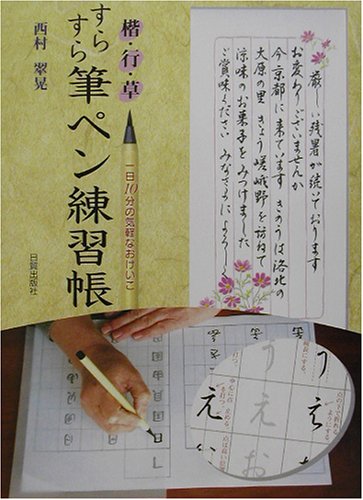 楷・行・草
すらすら筆ペン練習帳
西村 翠晃
一日10分の気軽なおけいこ
日貿出版社
厳しい残暑が続いております
お変わりございませんか
今京都に来ています きのうは洛北の
大原の里 きょう嵯峨野を訪ねて
涼味のお菓子をみつけました
ご賞味ください みなさまによろしく
え
う
え
お
え